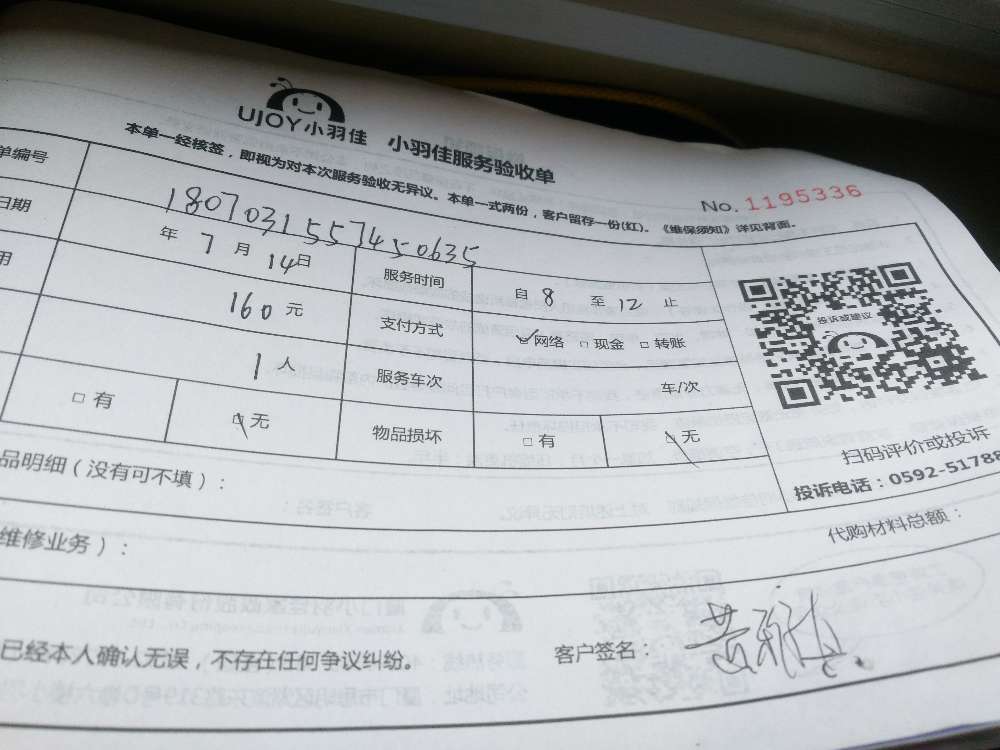 UJOY小羽佳 小羽佳服务验收单
本单一经核签，即视为对本次服务验收无异议。本单一式两份，客户留存一份(红)。《维保须知》详见背面。
No. 1195336
单编号 180703155745063S
日期 年 7 月 14 日 服务时间 自 8 至 12 止
用 160 元 支付方式 网络 现金 转账
1 人 服务车次 车/次
有 无 物品损坏 有 无
投诉或建议
扫码评价或投诉
投诉电话：0592-51788
品明细（没有可不填）：
代购材料总额：
维修业务）：
已经本人确认无误，不存在任何争议纠纷。 客户签名：